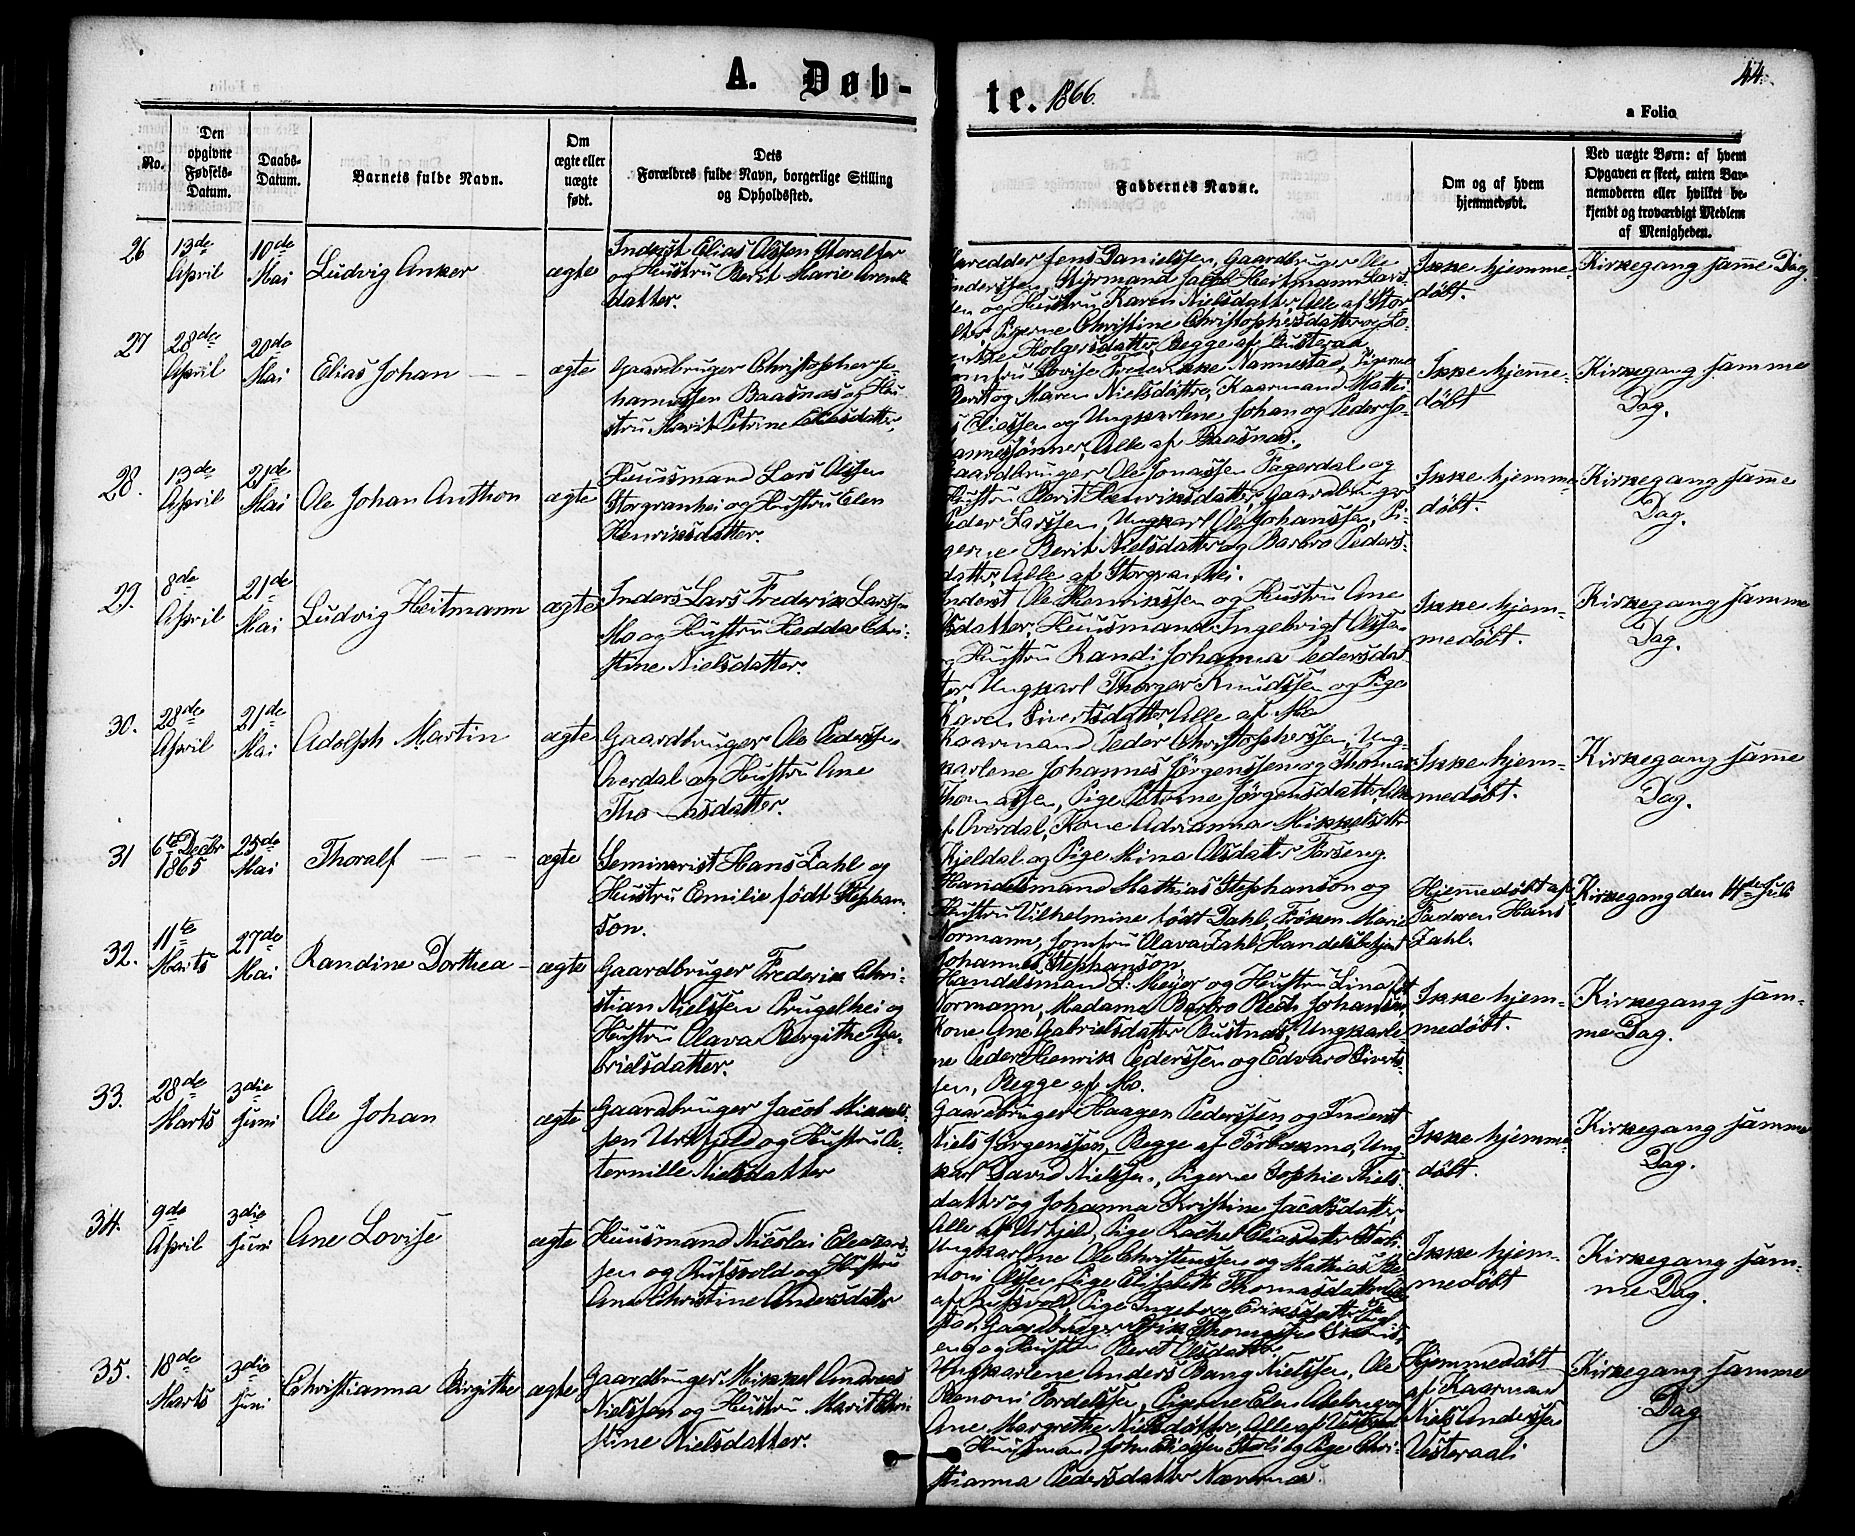 A. Døbte. 1866.
44.
a Folio
No.
Den opgivne Fødsels-Datum.
Daabs-Datum.
Barnets fulde Navn.
Om ægte eller uægte født.
Dets Forældres fulde Navn, borgerlige Stilling og Opholdssted.
Faddernes Navne.
Om og af hvem hjemmedøbt.
Ved uægte Børn: af hvem Opgaven er skeet, enten Barnemoderen eller hvilket bekjendt og troværdigt Medlem af Menigheden.
26 13de April 10de Mai Ludvig Anker ægte
Inderst Elias Olssen Storalter
og Hustru Berit Marie Arents
datter.
Jens Danielssen, Gaardbruger Ole
Styrmand Jacob Heitmann Lars-
sen og Hustru Karen Nielsdatter, Alle af Stor-
Pigerne Christine Christophersdatter og Lo-
Holgersdatter, Begge af
Ikke hjemme-
døbt.
Kirkegang samme Dag.
27 28de April 20de Mai Elias Johan ægte
Gaardbruger Christopher Jo-
hannessen Baasnas og Hu-
stru Marit Petrine Eliasdatter.
Jomfru Lovise Frederikke Nannestad, Pigerne
Berit og Maren Nielsdøttre, Kaarmand Mathi-
as Eliassen og Ungkarlene Johan og Peder Jo-
hannessønner, Alle af Baasnas.
Ikke hjemme-
døbt
Kirkegang samme
Dag.
28. 13de April 21de Mai Ole Johan Anthon ægte
Huusmand Lars Olssen
Storgranhei og Hustru Elen
Henriksdatter.
Gaardbruger Ole Jonassen Fagerdal og
Hustru Berit Henriksdatter, Gaardbruger
Peder Larssen, Ungkarl Ole Johanssen, Pi-
gerne Berit Nielsdatter og Barbro Peders-
datter, Alle af Storgranhei.
Ikke hjemme-
døbt.
Kirkegang samme
Dag.
29. 8de April 21de Mai Ludvig Heitmann ægte
Inders Lars Frederik Larssen
Mo og Hustru Hedda Chri-
stine Nielsdatter.
Inderst Ole Henrikssen og Hustru Ane
Olsdatter, Huusmand Ingebrigt Olssen
og Hustru Randi Johanna Pedersdat-
ter, Ungkarl Thorger Knudssen og Pige
Karen Sivertsdatter, Alle af Mo
Ikke hjem-
medøbt.
Kirkegang samme
Dag.
30. 28de April 21de Mai Adolph Martin ægte
Gaardbruger Ole Pederssen
Averdal og Hustru Ane
Tho-asdatter.
Kaarmand Peder Christopherssen, Ung-
karlene Johannes Jørgenssen og Thomas
Thomassen, Pige Petrine Jørgensdatter, Alle
af Averdal, Kone Adrianna Mikkelsdtr
Kjeldal og Pige Mina Olsdatter Forseng.
Ikke hjem-
medøbt.
Kirkegang samme
Dag.
31 6te Decbr 1865 25de Mai Thoralf ægte
Seminarist Hans Zahl og
Hustru Emilie født Stephan-
son.
Handelsmand Mathias Stephanson og
Hustru Vilhelmine født Dahl, Frøken Marie
Normann, Jomfru Olava Zahl, Handelsbetjent
Johannes Stephanson
Hjemmedøbt af
Faderen Hans
Zahl.
Kirkegang den 4de Juli
32. 11te Marts 27de Mai Randine Dorthea ægte
Gaardbruger Frederik Chri-
stian Nielssen Prugelhei og
Hustru Olava Bergithe Ga-
brielsdatter.
Handelsmand L. Meyer og Hustru Lina født
Normann, Madame Barbro Johansen,
Kone Ane Gabrielsdatter Bustnes, Ungkarle-
ne Peder Henrik Pederssen og Edvard Siverts-
sen, Begge af Mo.
Ikke hjem-
medøbt.
Kirkegang sam-
me Dag.
33. 28de Marts 3die Juni Ole Johan ægte
Gaardbruger Jacob Mikkels-
sen Urtfjeld og Hustru Pe-
ternille Nielsdatter
Gaardbruger Haagen Pederssen og Inderst
Niels Jørgenssen, Begge af Forbakmo, Ung-
karl David Nielssen, Pigerne Sophie Niels-
datter og Johanna Kristine Jacobsdatter,
Alle af Urtfjeld, Pige Rachel Eliasdatter
Ikke hjemme-
døbt.
Kirkegang samme
Dag.
34. 9de April 3die Juni Ane Lovise ægte
Huusmand Nicolai Eleazars-
sen og Rufsvold og Hustru
Ane Christine Andersdatr
Ungkarlene Ole Christenssen og Mathias Be-
noni Olssen, Pige Elisabeth Thomasdatter, Alle
af Rufsvold, Pige Ingeborg Eriksdatter
Gaardbruger Erik Thomassen
og Hustru Berit Olsdatter
Ikke hjem-
medøbt
Kirkegang sam-
me Dag.
35. 18de Marts 3die Juni Christianna Birgithe ægte
Gaardbruger Mikkel Andreas
Nielssen og Hustru Marit Chri-
stine Nielsdatter.
Ungkarlene Anders Bang Nielssen, Ole
Benoni Tordelssen, Pigerne Elen og
Ane Margrethe Nielsdøttre, Alle af
Huusmand John Eliassen og Pige Chri-
stianna Pedersdatter
Hjemmedøbt
af Kaarman
Niels Anderssen
Vesteraali
Kirkegang samme
Dag